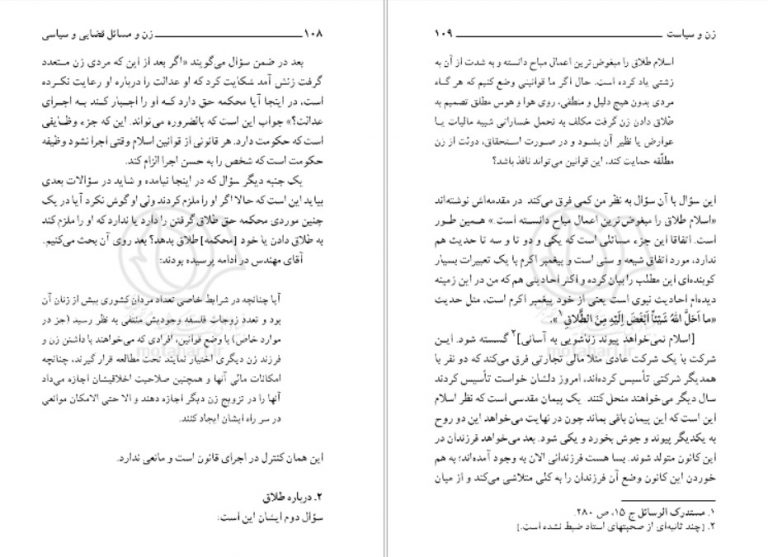 ۱۰۸ زن و مسائل قضایی و سیاسی
بعد در ضمن سؤال می‌گویند «اگر بعد از این که مردی زن متعدد
گرفت زنش آمد شکایت کرد که او عدالت را درباره او رعایت نکرده
است، در اینجا آیا محکمه حق دارد که او را اجبار کند به اجرای
عدالت؟» جواب این است که بالضروره می‌تواند. این که جزء وظایفی
است که حکومت دارد. هر قانونی از قوانین اسلام وقتی اجرا نشود وظیفه
حکومت است که شخص را به حسن اجرا الزام کند.
یک جنبه دیگر سؤال که در اینجا نیامده و شاید در سؤالات بعدی
بیاید این است که حالا اگر او را ملزم کردند ولی او گوش نکرد آیا در یک
چنین موردی محکمه حق طلاق گرفتن را دارد یا ندارد که او را ملزم کند
به طلاق دادن یا خود [محکمه] طلاق بدهد؟ بعد روی آن بحث می‌کنیم.
آقای مهندس در ادامه پرسیده بودند:
آیا چنانچه در شرایط خاصی تعداد مردان کشوری بیش از زنان آن
بود و تعدد زوجات فلسفه وجودیش منتفی به نظر رسید (جز در
موارد خاص) با وضع قوانین، افرادی که می‌خواهند با داشتن زن و
فرزند زن دیگری اختیار نمایند تحت مطالعه قرار گیرند، چنانچه
امکانات مالی آنها و همچنین صلاحیت اخلاقیشان اجازه می‌داد
آنها را در تزویج زن دیگر اجازه دهند و الا حتی الامکان موانعی
در سر راه ایشان ایجاد کنند.
این همان کنترل در اجرای قانون است و مانعی ندارد.
۲. درباره طلاق
سؤال دوم ایشان این است:
زن و سیاست ۱۰۹
اسلام طلاق را مبغوض ترین اعمال مباح دانسته و به شدت از آن به
زشتی یاد کرده است. حال اگر ما قوانینی وضع کنیم که هر گاه
مردی بدون هیچ دلیل و منطقی، روی هوا و هوس مطلق تصمیم به
طلاق دادن زن گرفت مکلف به تحمل خساراتی شبیه مالیات یا
عوارض یا نظیر آن بشود و در صورت استحقاق، دولت از زن
مطلّقه حمایت کند، این قوانین می‌تواند نافذ باشد؟
این سؤال با آن سؤال به نظر من کمی فرق می‌کند در مقدمه‌اش نوشته‌اند
«اسلام طلاق را مبغوض ترین اعمال مباح دانسته است» همین طور
است. اتفاقا این جزء مسائلی است که یکی و دو تا و سه تا حدیث هم
ندارد، مورد اتفاق شیعه و سنی است و پیغمبر اکرم با یک تعبیرات بسیار
کوبنده‌ای این مطلب را بیان کرده و اکثر احادیثی هم که من در این زمینه
دیده‌ام احادیث نبوی است یعنی از خود پیغمبر اکرم است، مثل حدیث
«ما اَحَلَّ اللهُ شَیْئاً اَبْغَضَ اِلَیْهِ مِنَ الطَّلاقِ۱».
[اسلام نمی‌خواهد پیوند زناشویی به آسانی]۲ گسسته شود. این
شرکت با یک شرکت عادی مثلا مالی تجارتی فرق می‌کند که دو نفر با
همدیگر شرکتی تأسیس کرده‌اند، امروز دلشان خواست تأسیس کردند
سال دیگر می‌خواهند منحل کنند. یک پیمان مقدسی است که نظر اسلام
این است که این پیمان باقی بماند چون در نهایت می‌خواهد این دو روح
به یکدیگر پیوند و جوش بخورد و یکی شود. بعد می‌خواهد فرزندان در
این کانون متولد شوند. بسا هست فرزندانی الان به وجود آمده‌اند؛ به هم
خوردن این کانون وضع آن فرزندان را به کلی متلاشی می‌کند و از میان
۱. مستدرک الوسائل ج ۱۵، ص ۲۸۰.
۲. [چند ثانیه‌ای از صحبتهای استاد ضبط نشده است.]